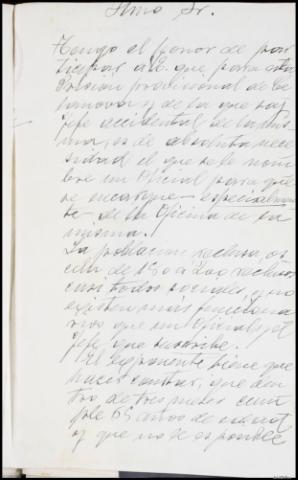 Ilmo Sr.
Tengo el honor de par
ticipar a V.E. que para esta
Prision provisional de
y de la que soy
jefe accidental de la mis
ma, es de absoluta nece
sidad el que se le nom
bre un Oficial para que
se encargue - especialmen
te - de la Oficina de la
misma.
La poblacion reclusa, os
cila de 150 a 200 reclusos,
casi todos sociales, y no
existen más funciona
rios que un Oficial y el
Jefe que suscribe.
El exponente tiene que
hacer contar, que den
tro de tres meses cum
ple 65 años de
y que no le es posible